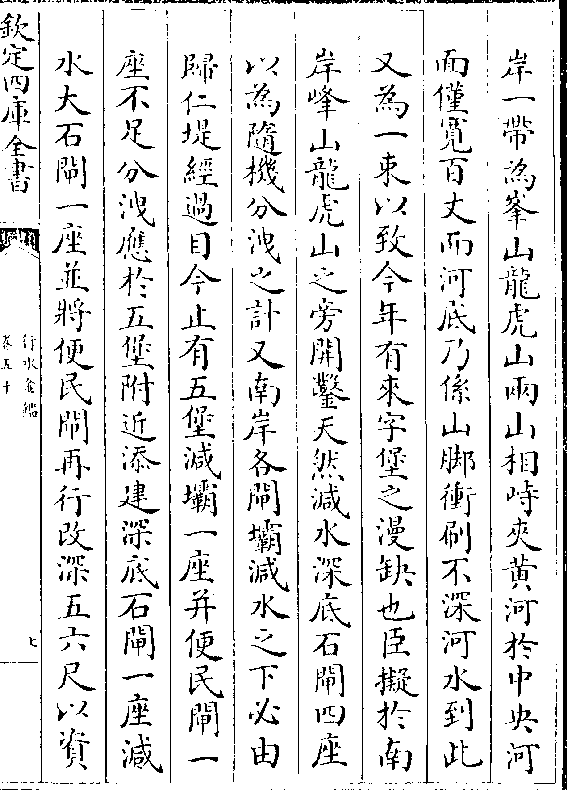 岸一帶為峯山龍虎山兩山相峙夾黃河於中央河
而僅寬百丈而河底乃係山脚衝刷不深河水到此
又為一束以致今年有來字堡之漫缺也臣擬於南
岸峰山龍虎山之旁開鑿天然減水深底石閘四座
以為隨機分洩之計又南岸各閘壩減水之下必由
歸仁堤經過目今止有五堡減壩一座并便民閘一
座不足分洩應於五堡附近添建深底石閘一座減
水大石閘一座並將便民閘再行改深五六尺以資
欽定四庫全書
行水金鑑
卷五十
七